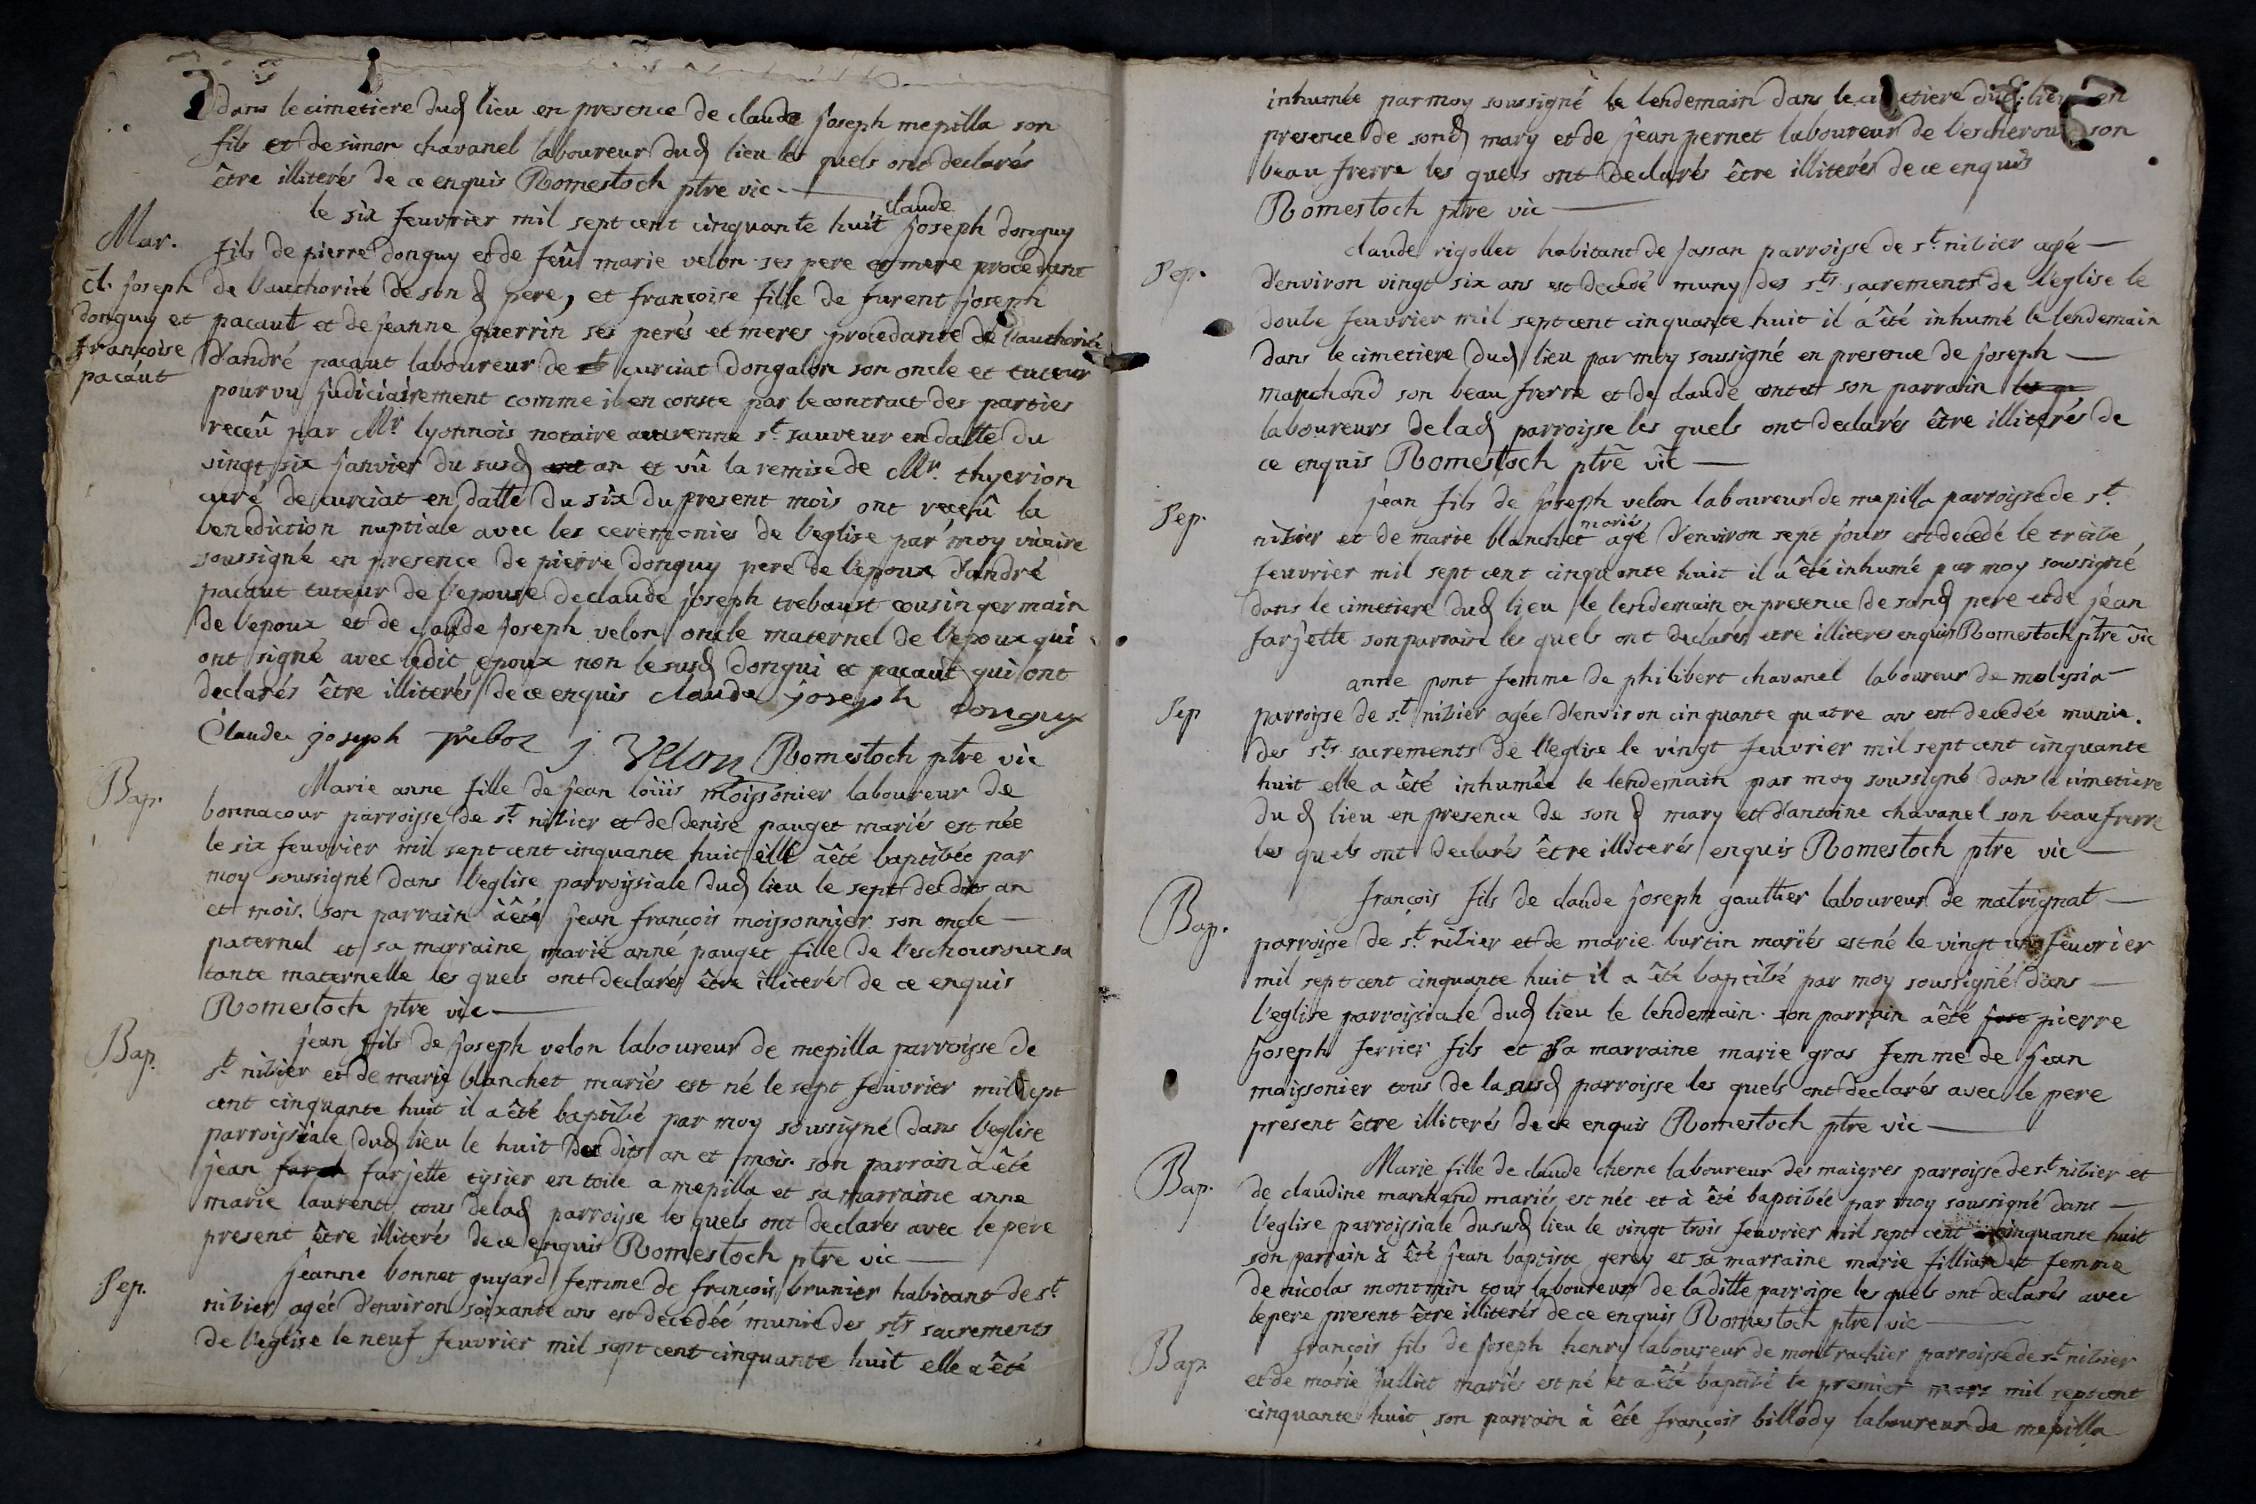 dans le cimetiere dud lieu en presence de claude joseph mepilla son
fils et de simon chavanel laboureur dud lieu les quels ont declarés
être illiterés de ce enquis Romestoch ptre vic
Mar.
cl. joseph
donguy et
francoise
pacaut
claude
le six feuvrier mil sept cent cinquante huit joseph donguy
fils de pierre donguy et de feû marie velon ses pere et mere procedant
de l'authorité de son d pere, et françoise fille de furent joseph
pacaut et de jeanne guerrin ses perés et meres procedante de l'authorité
d'andré pacaut laboureur de curciat dongalon son oncle et tuteur
pourvu judiciairement comme il en conste par le contract des parties
receû par Mr lyonnois notaire avarenne st sauveur en datte du
vingt six janvier du susd an et vû la remise de Mr. thyerion
curé de curciat en datte du six du present mois ont receû la
benediction nuptiale avec les ceremonies de l'eglise par moy vicaire
soussigné en presence de pierre donguy pere de l'epoux d'andré
pacaut tuteur de l'epouse de claude joseph trebaust cousin germain
de l'epoux et de claude joseph velon oncle maternel de l'epoux qui
ont signé avec ledit epoux non le susd dongui et pacaut qui ont
declarés être illiterés de ce enquis claude joseph donguy
Claude joseph treboz j Velon Romestoch ptre vic
Bap.
Marie anne fille de jean loüis moissonier laboureur de
bonnacour parroisse de st nibier et de denise pauget mariés est née
le six feuvrier mil sept cent cinquante huit elle à êté baptibée par
moy soussigné dans l'eglise parroissiale dud lieu le sept des dits an
et mois. son parrain à êté jean françois moissonnier son oncle
paternel et sa marraine marie anne pauget fille de l'eschouroux sa
tante maternelle les quels ont declarés être illiterés de ce enquis
Romestoch ptre vic
Bap.
jean fils de joseph velon laboureur de mepilla parroisse de
st nibier et de marie blanchet mariés est né le sept feuvrier mil sept
cent cinquante huit il a êté baptibé par moy soussigné dans l'eglise
parroissiale dud lieu le huit des dits an et mois. son parrain à êté
jean farjette tissier en toile a mepilla et sa marraine anne
marie laurent tous de lad parroisse les quels ont declarés avec le pere
present être illiterés de ce enquis Romestoch ptre vic
Sep.
jeanne bonnet guyard femme de françois brunier habitant de st
nibier agée d'environ soixante ans est decedéé munie des sts sacrements
de l'eglise le neuf feuvrier mil sept cent cinquante huit elle a êté
inhumée par moy soussigné le lendemain dans le cimetiere dud lieu en
presence de sond mary et de jean pernet laboureur de l'escheroux son
beau frerre les quels ont declarés être illiterés de ce enquis
Romestoch ptre vic
Sep.
claude rigollet habitant de jassan parroisse de st nibier agé
d'environ vingt six ans est decedé muny des sts sacrements de l'eglise le
doube feuvrier mil sept cent cinquante huit il à êté inhumé le lendemain
dans le cimetiere dud lieu par moy soussigné en presence de joseph
marchand son beau frerre et de claude contet son parrain
laboureurs de lad parroisse les quels ont declarés être illiterés de
ce enquis Romestoch ptre vic
Sep.
jean fils de joseph velon laboureur de mepilla parroisse de st
mariés
nibier et de marie blanchet agé d'environ sept jours est decedé le treibe
feuvrier mil sept cent cinquante huit il a êté inhumé par moy soussigné
dans le cimetiere dud lieu le lendemain en presence de sond pere et de jean
farjette son parrain les quels ont declarés etre illiteres enquis Romestoch ptre vic
Sep
anne pont femme de philibert chavanel laboureur de molysia
parroisse de st nibier agée d'environ cinquante quatre ans est decedée munie.
des sts sacrements de l'eglise le vingt feuvrier mil sept cent cinquante
huit elle a êté inhumée le lendemain par moy soussigné dans le cimetiere
du d lieu en presence de son d mary et d'antoine chavanel son beau frerre
les quels ont declarés être illiterés enquis Romestoch ptre vic
Bap.
françois fils de claude joseph gauttier laboureur de matrignat
parroisse de st nibier et de marie burtin mariés est né le vingt un feuvrier
mil sept cent cinquante huit il a êté baptibé par moy soussigné dans
l'eglise parroissiale dud lieu le lendemain. son parrain à êté pierre
joseph ferrier fils et sa marraine marie gras femme de jean
moissonier tous de la susd parroisse les quels ont declarés avec le pere
present être illiterés de ce enquis Romestoch ptre vic
Bap.
Marie fille de claude chesne laboureur des maigres parroisse de st nibier et
de claudine marchand mariés est née et à êté baptibée par moy soussigné dans
l'eglise parroissiale du susd lieu le vingt trois feuvrier mil sept cent cinquante huit
son parrain à êté jean baptiste geroy et sa marraine marie filliardet femme
de nicolas montmin tous laboureurs de la ditte parroisse les quels ont declarés avec
le pere present être illiterés de ce enquis Romestoch ptre vic
Bap.
françois fils de joseph henry laboureur de montrachier parroisse de st nibier
et de marie julliet mariés est né et a êté baptibé le premier mars mil sept cent
cinquante huit son parrain à êté françois billody laboureur de mepilla